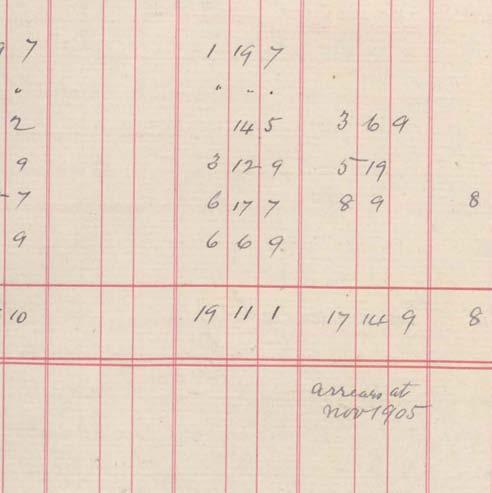 9 7 1 19 7
" " " "
2 14 5 3 6 9
9 3 12 9 5 19
7 6 17 7 8 9 8
9 6 6 9
10 19 11 1 17 14 9 8
arrears at
nov 1905